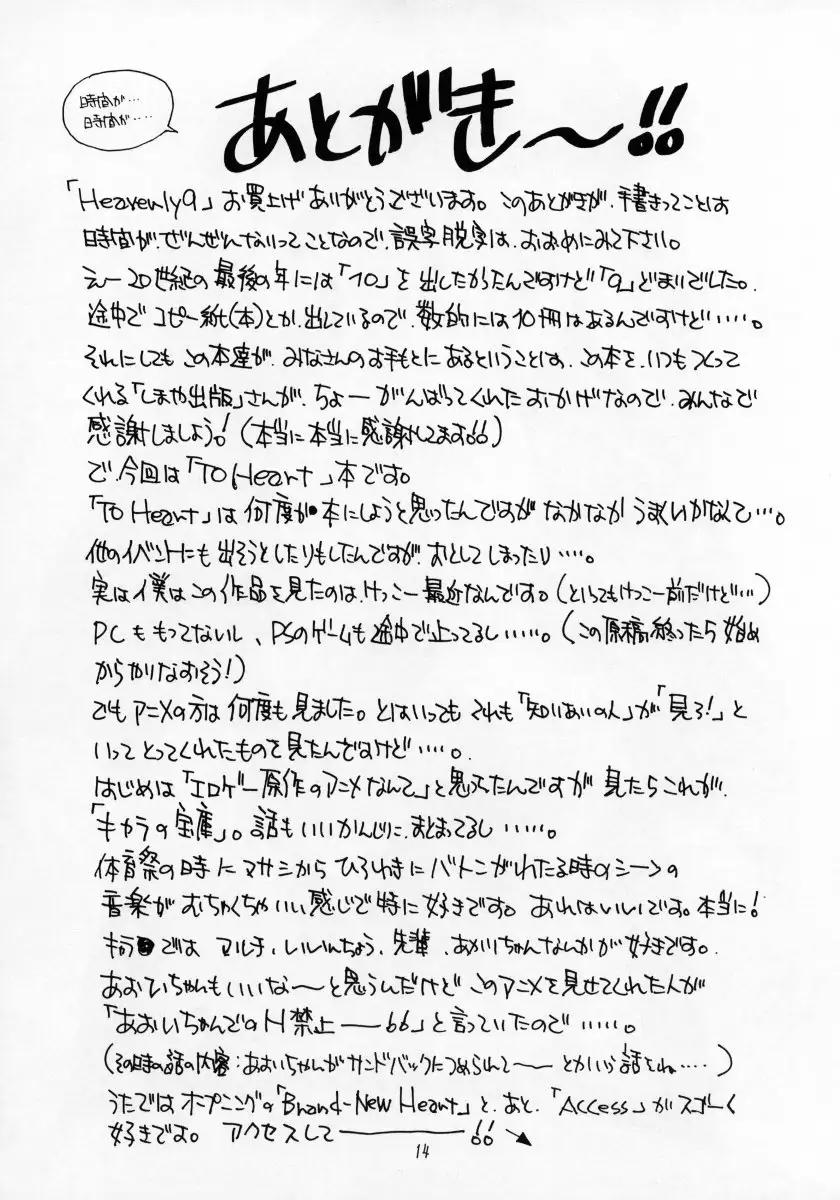 時間が…
時間が‥‥
あとがき〜!!
「Heavenly9」お買上げありがとうございます。このあとがきが、手書きってことは
時間が、ぜんぜんないってことなので、誤字脱字は、おおめにみて下さい。
えー20世紀の最後の年には「10」を出したかったんですけど「9」どまりでした。
途中でコピー紙(本)とか、出しているので、数的には10冊はあるんですけど……。
それにしてもこの本達が、みなさんのお手もとにあるということは、この本を、いつもつくって
くれる「しまや出版」さんが、ちょーがんばってくれたおかげなので、みんなで
感謝しましょう!(本当に本当に感謝してます!!)
で、今回は「To Heart」本です。
「To Heart」は何度か本にしようと思ったんですがなかなかうまくいかなくて…。
他のイベントにも出そうとしたりもしたんですが、おとしてしまったり‥‥。
実は僕はこの作品を見たのは、けっこー最近なんです。(といってもけっこー前だけど…)
PCももってないし、PSのゲームも途中で止ってるし……。(この原稿終ったら始め
からやりなおそう!)
でもアニメの方は何度も見ました。とはいってもそれも「知りあいの人」が「見ろ!」と
いってとってくれたものを見たんですけど‥‥。
はじめは「エロゲー原作のアニメなんて」と思ってたんですが見たらこれが、
「キャラの宝庫」。話もいいかんじに、まとまってるし……。
体育祭の時にマサシからひろゆきにバトンがわたる時のシーンの
音楽がむちゃくちゃいい感じで特に好きです。あれはいいです。本当に!
キャラでは マルチ、いいんちょう、先輩、あかりちゃんなんかが好きです。
あおいちゃんもいいな〜と思うんだけどこのアニメを見せてくれた人が
「あおいちゃんでのH禁止――!!」と言っていたので……。
(その時の話の内容:あおいちゃんがサンドバックにつめられて――とかいう話をね‥‥)
うたではオープニングの「Brand-New Heart」と、あと、「Access」がスゴーく
好きです。アクセスして――――!!
14